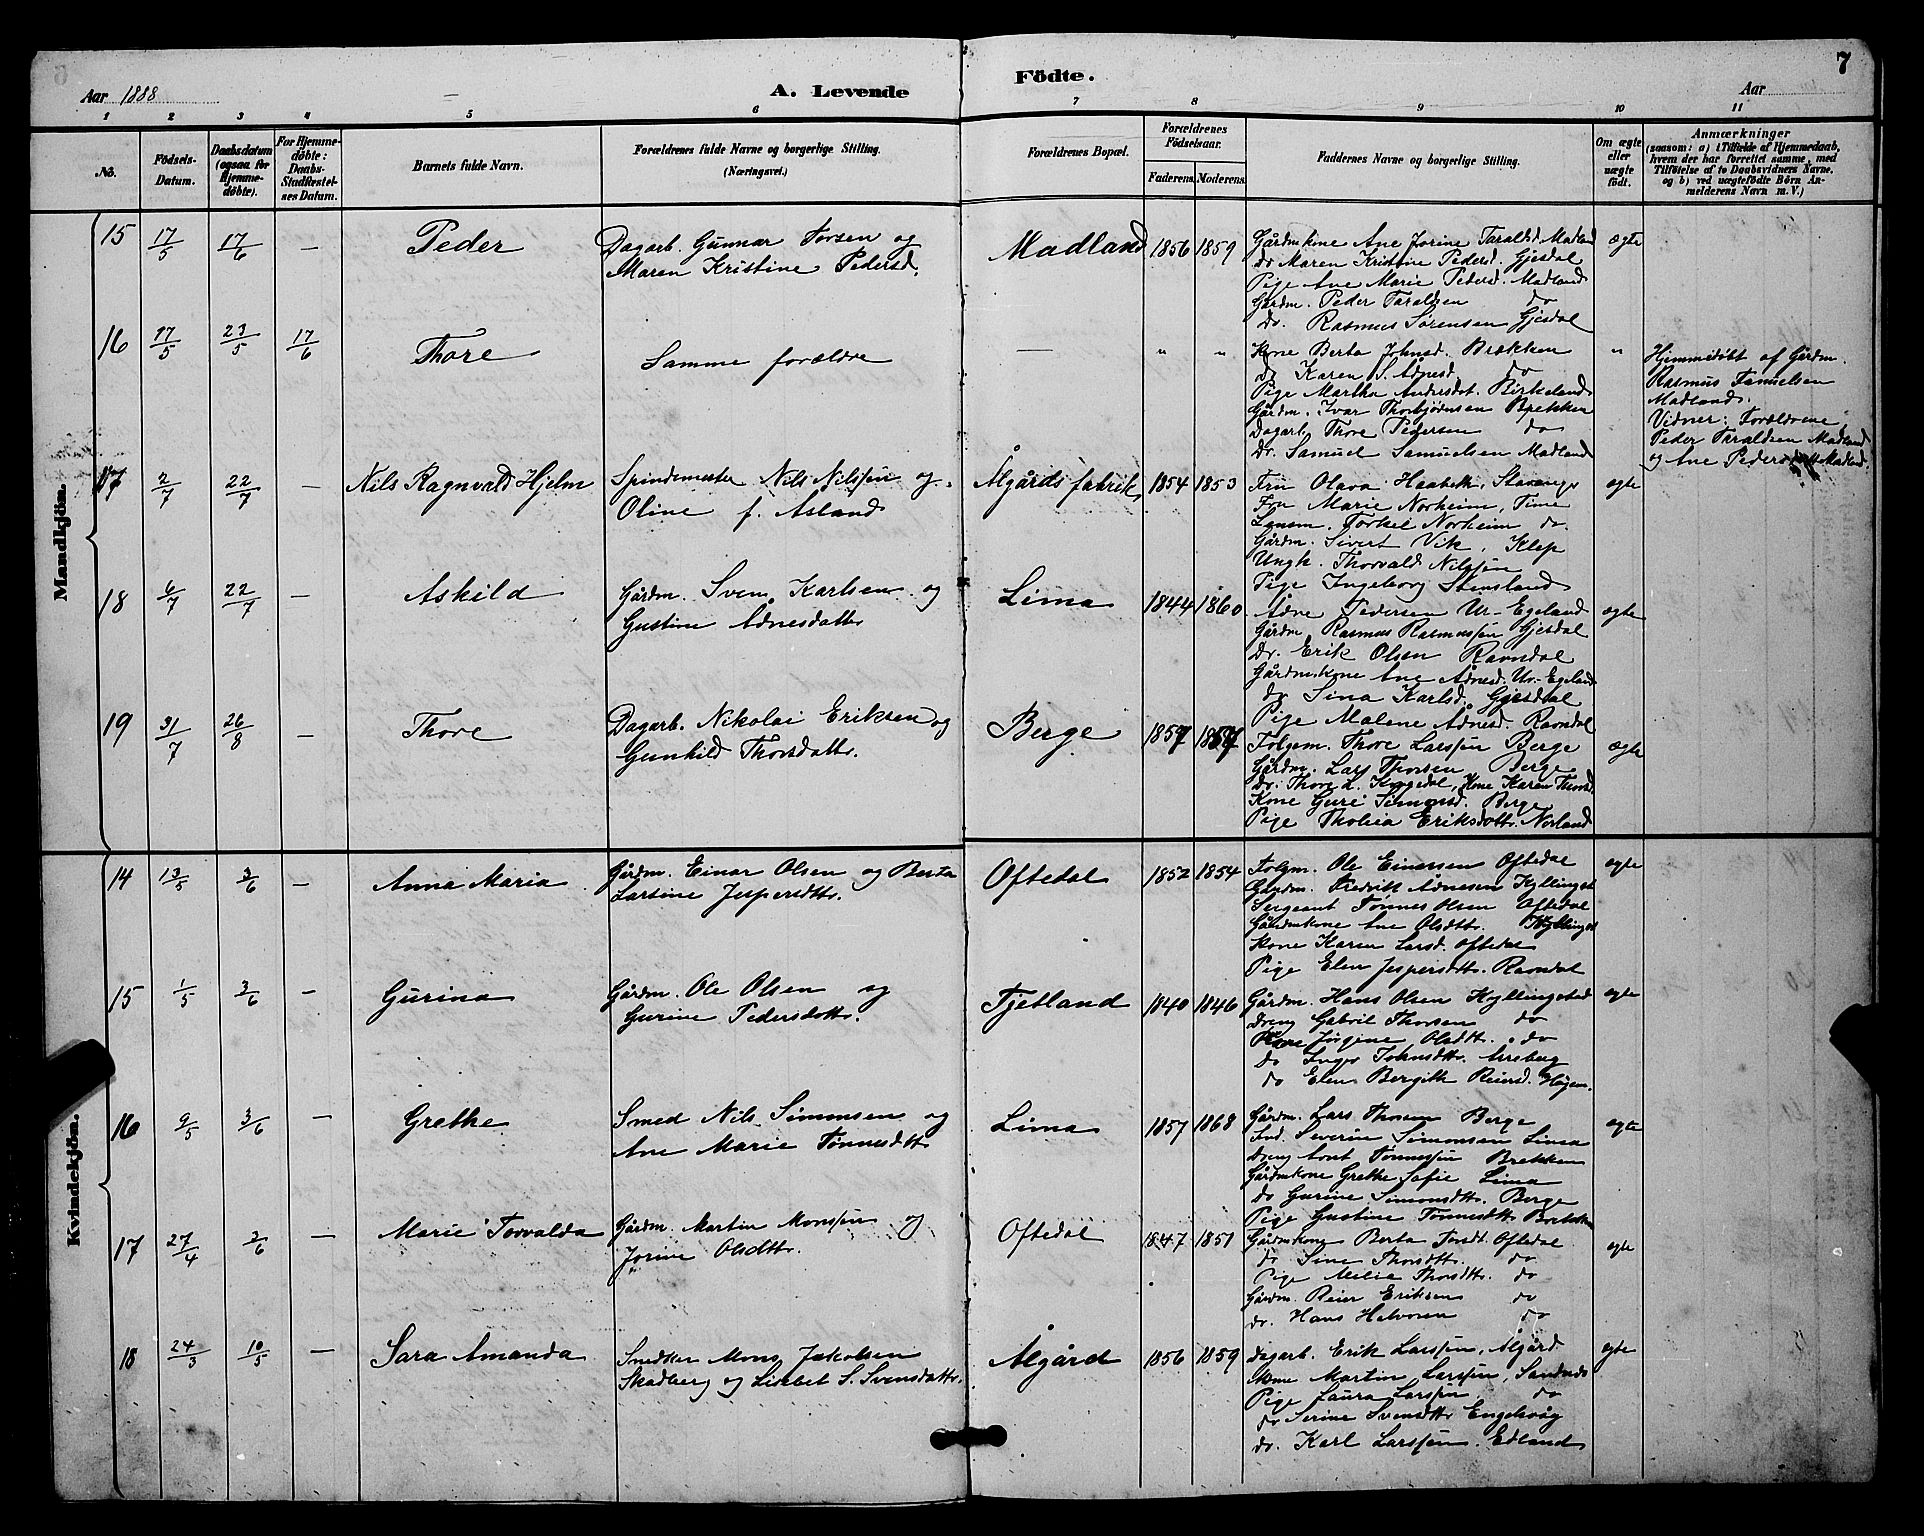 6
Aar 1888
A. Levende
Födte.
Aar
7
1 2 3 4 5 6 7 8 9 10 11
No.
Födsels-
Datum.
Daabsdatum
(ogsaa for
Hjemme-
döbte).
For Hjemme-
döbte:
Daabs-
Stadfæstel-
ses Datum.
Barnets fulde Navn.
Forældrenes fulde Navne og borgerlige Stilling.
(Næringsvei.)
Forældrenes Bopæl.
Forældrenes
Födselsaar.
Faderens.
Moderens.
Faddernes Navne og borgerlige Stilling.
Om ægte
eller
uægte
födt.
Anmærkninger
(saasom: a) i Tilfælde af Hjemmedaab,
hvem der har forrettet samme, med
Tilföielse af to Daabsvidners Navne,
og b) ved uægtefödte Börn An-
melderens Navn m. V.)
Mandkjön.
15 17/5 17/6 — Peder
Dagarb. Gunnar Torsen og
Maren Kristine Pedersd.
Madland 1856 1859
Gårdmkone Ane Jorine Taralsd. Madland
do Maren Kristine Pedersd. Gjesdal
Pige Ane Marie Pedersd. Madland
Gårdm. Peder Taraldsen do
Do. Rasmus Sørensen Gjesdal
ægte
16 17/5 23/5 17/6 Thore
Samme forældre
— " "
Kone Berta Johnsd. Brækken
do Karen S. Ådnesd. do
Pige Martha Andersdat. Birkeland
Gårdm. Ivar Thorbjørnsen Brekken
Dagarb. Thore Pedersen do
Do. Samuel Samuelsen Madland
"
Hjemmedøbt af Gårdm.
Rasmus Samuelsen
Madland.
Vidner: Forældrene,
Peder Taraldsen Madland
og Ane Pedersdatt Madland.
17 2/7 22/7 — Nils Ragnvald Hjelm
Spindemester Nils Nilssen og
Oline f. Asland
Ålgårds fabrik 1854 1853
Fru Olava Haabeth, Stavanger
Fru Marie Norheim, Time
Lensm. Torkel Norheim do.
Gårdm. Sivert Vik, Klep
Ungk. Thorvald Nilssen
Pige Ingeborg Stensland
ægte
18 6/7 22/7 — Askild
Gårdm. Sven Karlsen og
Gustine Ådnesdatter
Lima 1844 1860
Ådne Pedersen Ur. Egeland
Gårdm. Rasmus Rasmussen Gjesdal
Do. Erik Olsen Ravndal
Gårdmkone Ane Ådnesd. Ur. Egeland
do Sina Karlsd. Gjesdal
Pige Malene Ådnesd. Ravndal
ægte
19 31/7 26/8 — Thore
Dagarb. Nikolai Eriksen og
Gunhild Thorsdattr.
Berge 1857 1857
Folgem. Thore Larssen Berge
Gårdm. Lars Thorsen Berge
Do. Thore L. Kyggdal, Kone Karen Thorsd.
Kone Guri Simonsd. Berge
Pige Tholica Eriksdattr. Norland
ægte
Kvindekjön.
14 13/5 3/6 — Anna Maria
Gårdm. Einar Olsen og Berta
Lartine Jespersdtr.
Oftedal 1852 1854
Folgm. Ole Einarsen Oftedal
Gårdm. Fredrik Ådnesen Kyllingst
Sergeant Tønnes Olsen Oftedal
Gårdmkone Ane Olsdttr. Kyllingst
Kone Karen Larsd. Oftedal
Pige Elen Jespersdttr. Ravndal
ægte
15 1/5 3/6 — Gurina
Gårdm. Ole Olsen og
Gurine Pedersdattr.
Tjetland 1840 1846
Gårdm. Hans Olsen Kyllingstad
Dreng Gabril Thorsen do
Kone Jørgine Olsdttr. do
do Inger Johnsdttr. Arreberg
do Elen Bergith Reiersd. Høgm.
ægte
16 9/5 3/6 — Grethe
Smed Nils Simonsen og
Ane Marie Tønnesdttr
Lima 1857 1868
Gårdm. Lars Thorsen Berge
Ind. Severin Simonsen Lima
Dreng Arnt Tønnessen Brekken
Gårdmkone Grethe Sofie Lima
do Gurine Simonsdttr. Berge
Pige Gustine Tønnesdttr Brekken
ægte
17 27/4 3/6 — Marie Torvalda
Gårdm. Martin Monssen og
Jorine Olsdttr.
Oftedal 1847 1851
Gårdmkone Berta Torsdt. Oftedal
do Sine Thorsdttr. do
Pige Melie Thorsdttr. do
Gårdm. Reier Eriksen do
do. Hans Halvorsen do
ægte
18 24/3 10/5 — Sara Amanda
Snedker Mons Jakobsen
Skadberg og Lisebet S. Svensdattr.
Ålgård 1856 1859
Dagarb. Erik Larssen, Ålgård
Kone Martin Larssen, Sandnes
Pige Laura Larssen, do
do Serine Svensdttr Engelsvåg
do. Karl Larssen. Edland
ægte